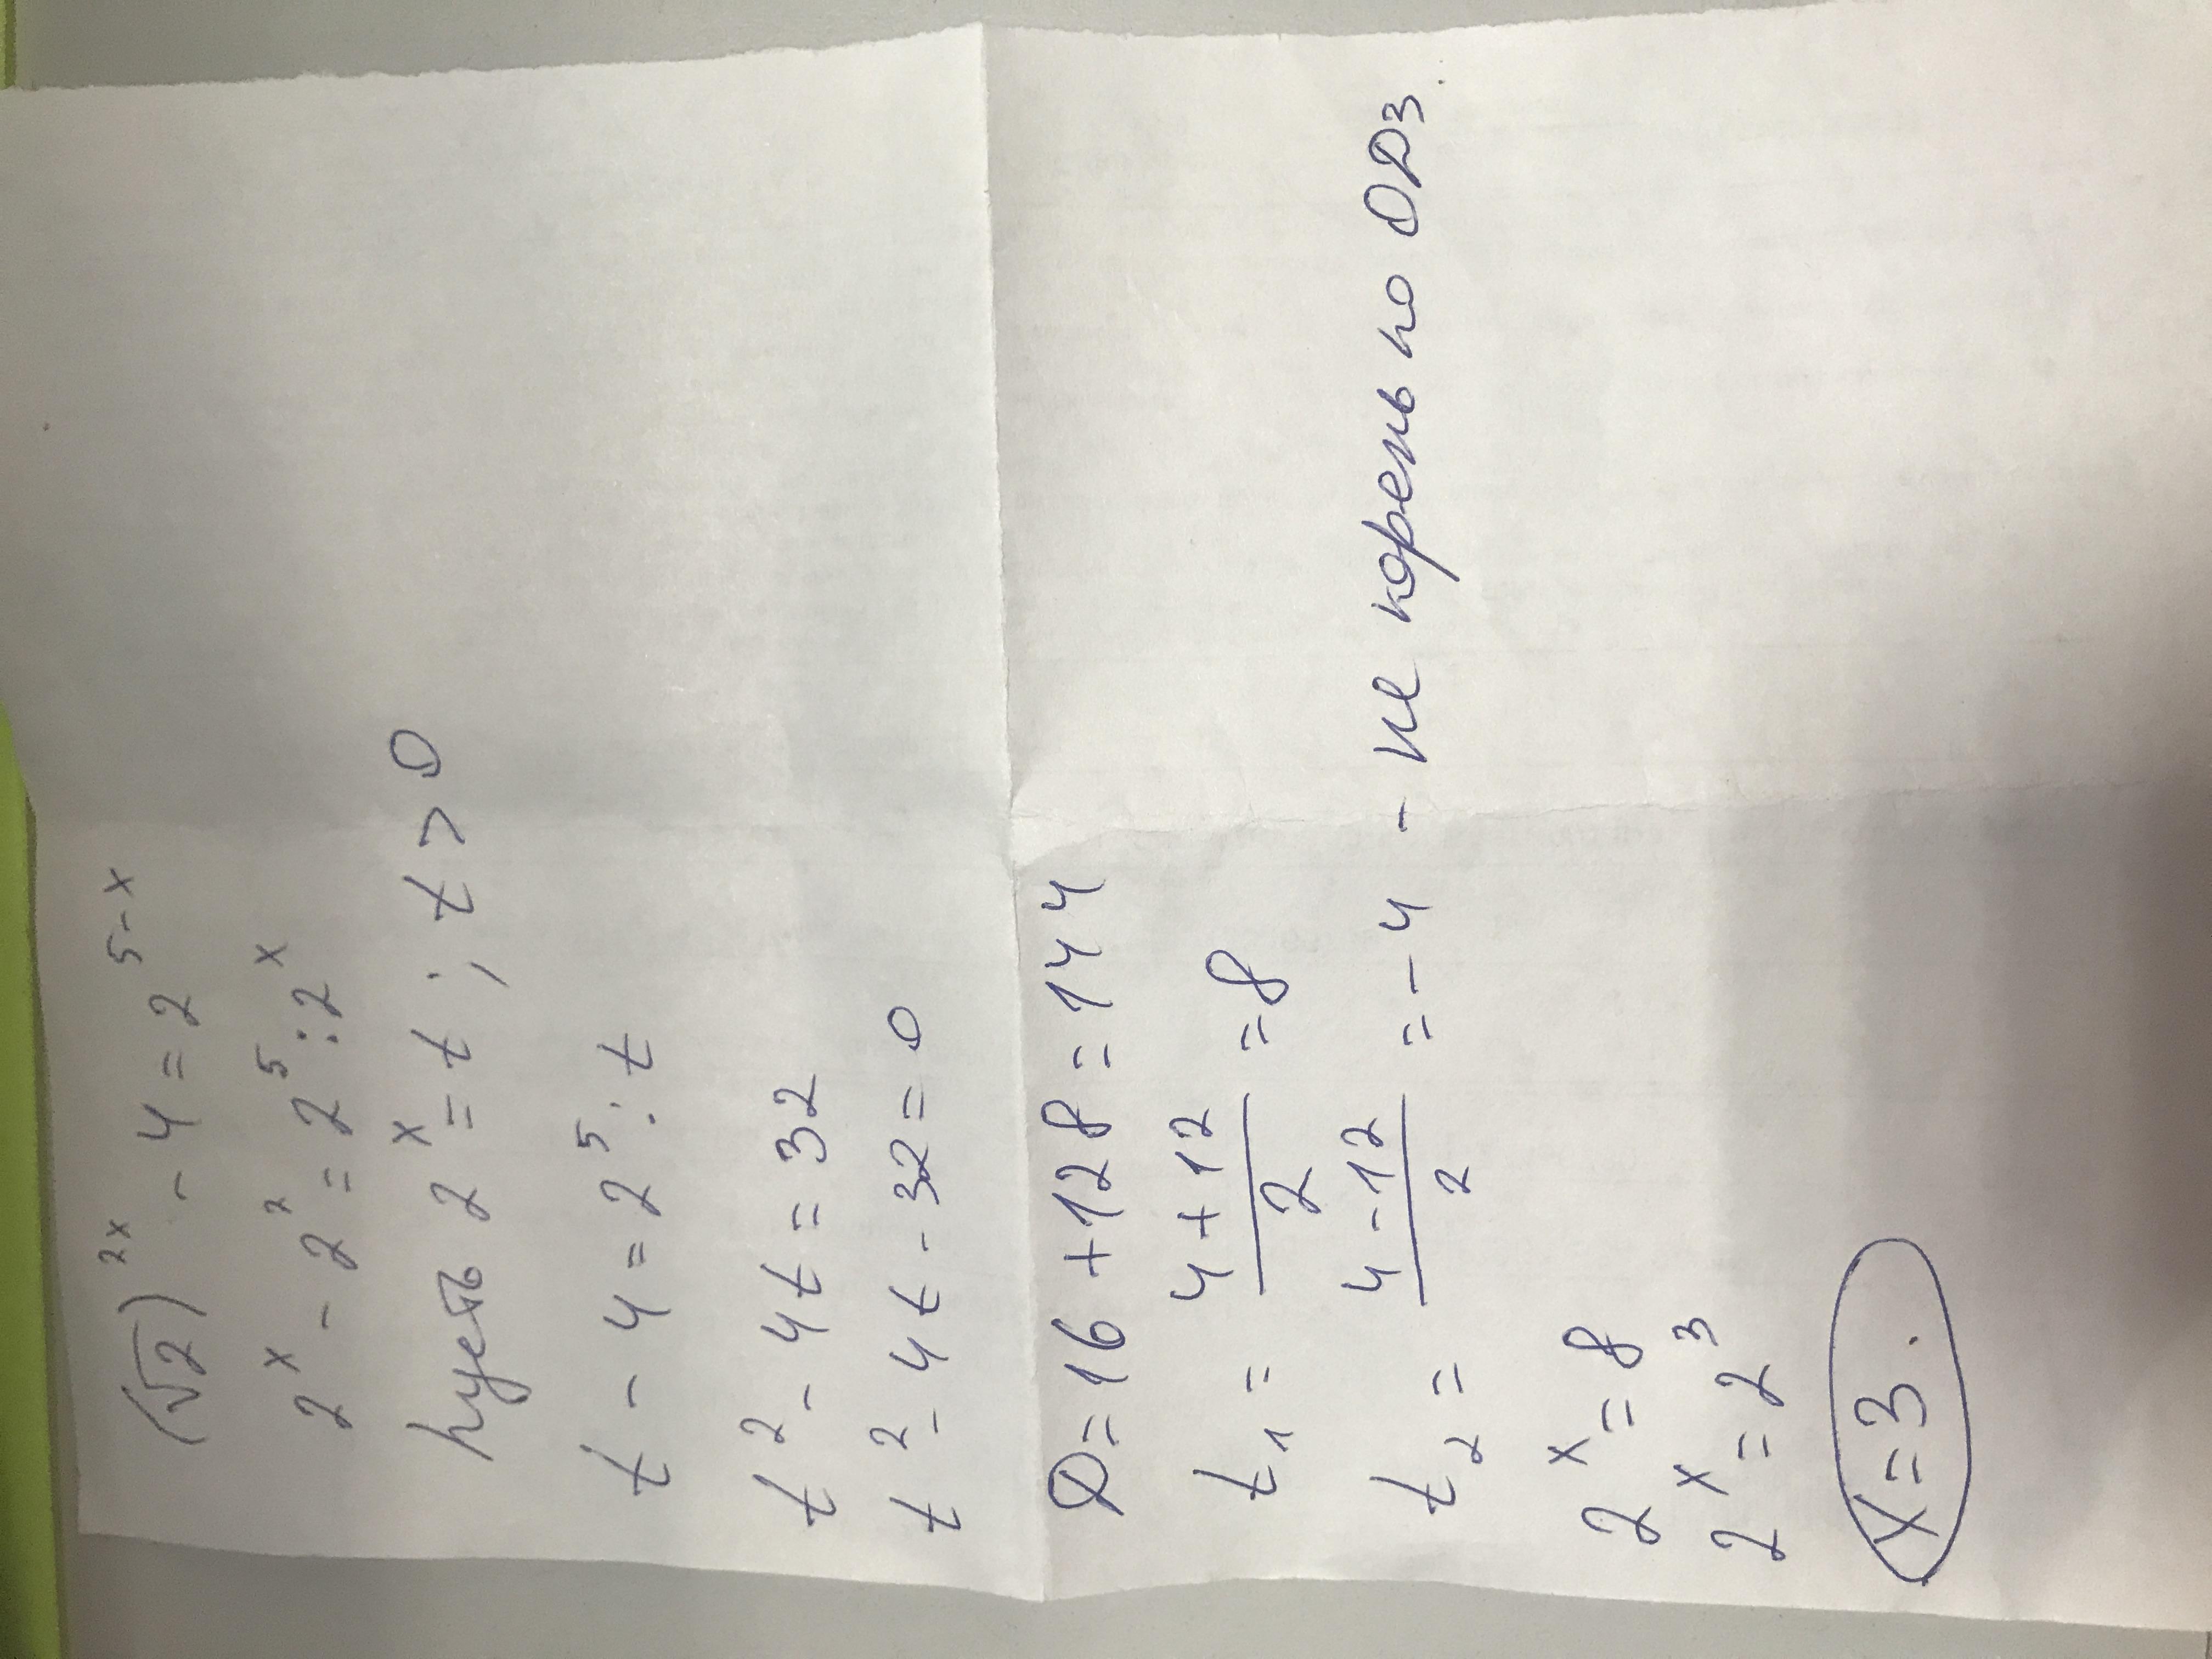 (√2)^2x - 4 = 2^5-x
2^x - 2^2 = 2^5 : 2^x
Пусть 2^x = t ; t > 0
t - 4 = 2^5 : t
t^2 - 4t = 32
t^2 - 4t - 32 = 0
D = 16 + 128 = 144
t₁ = (4 + 12)/2 = 8
t₂ = (4 - 12)/2 = -4 - не корень по ОДЗ.
2^x = 8
2^x = 2^3
x = 3.